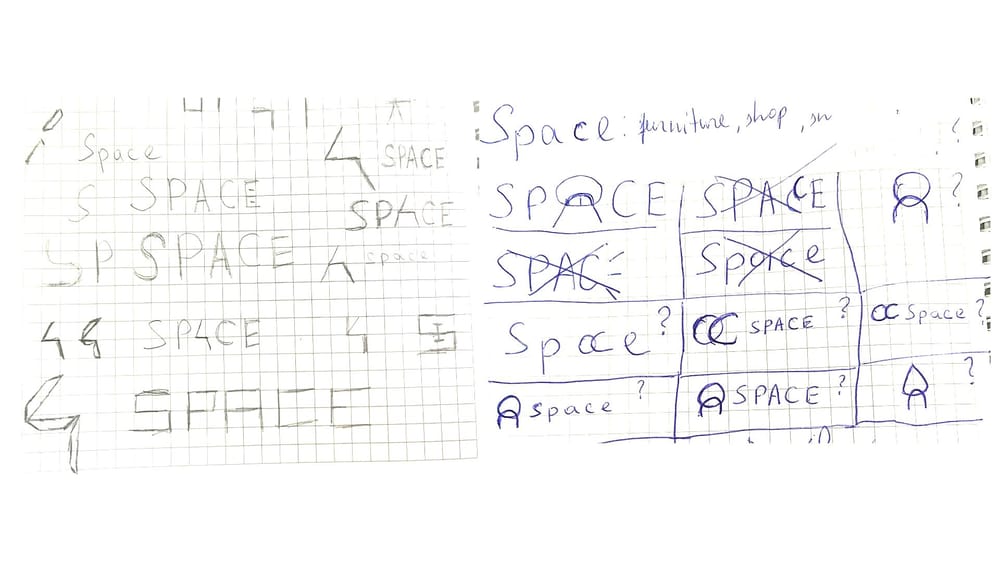 Space
SPACE
S SPACE
SPACE
SP SPACE
space
SPACE
SPACE
Space: furniture, shop,
SPACE
SPACE
?
SPAC
Space
Space ?
SPACE ?
Space ?
space ?
SPACE ?
?